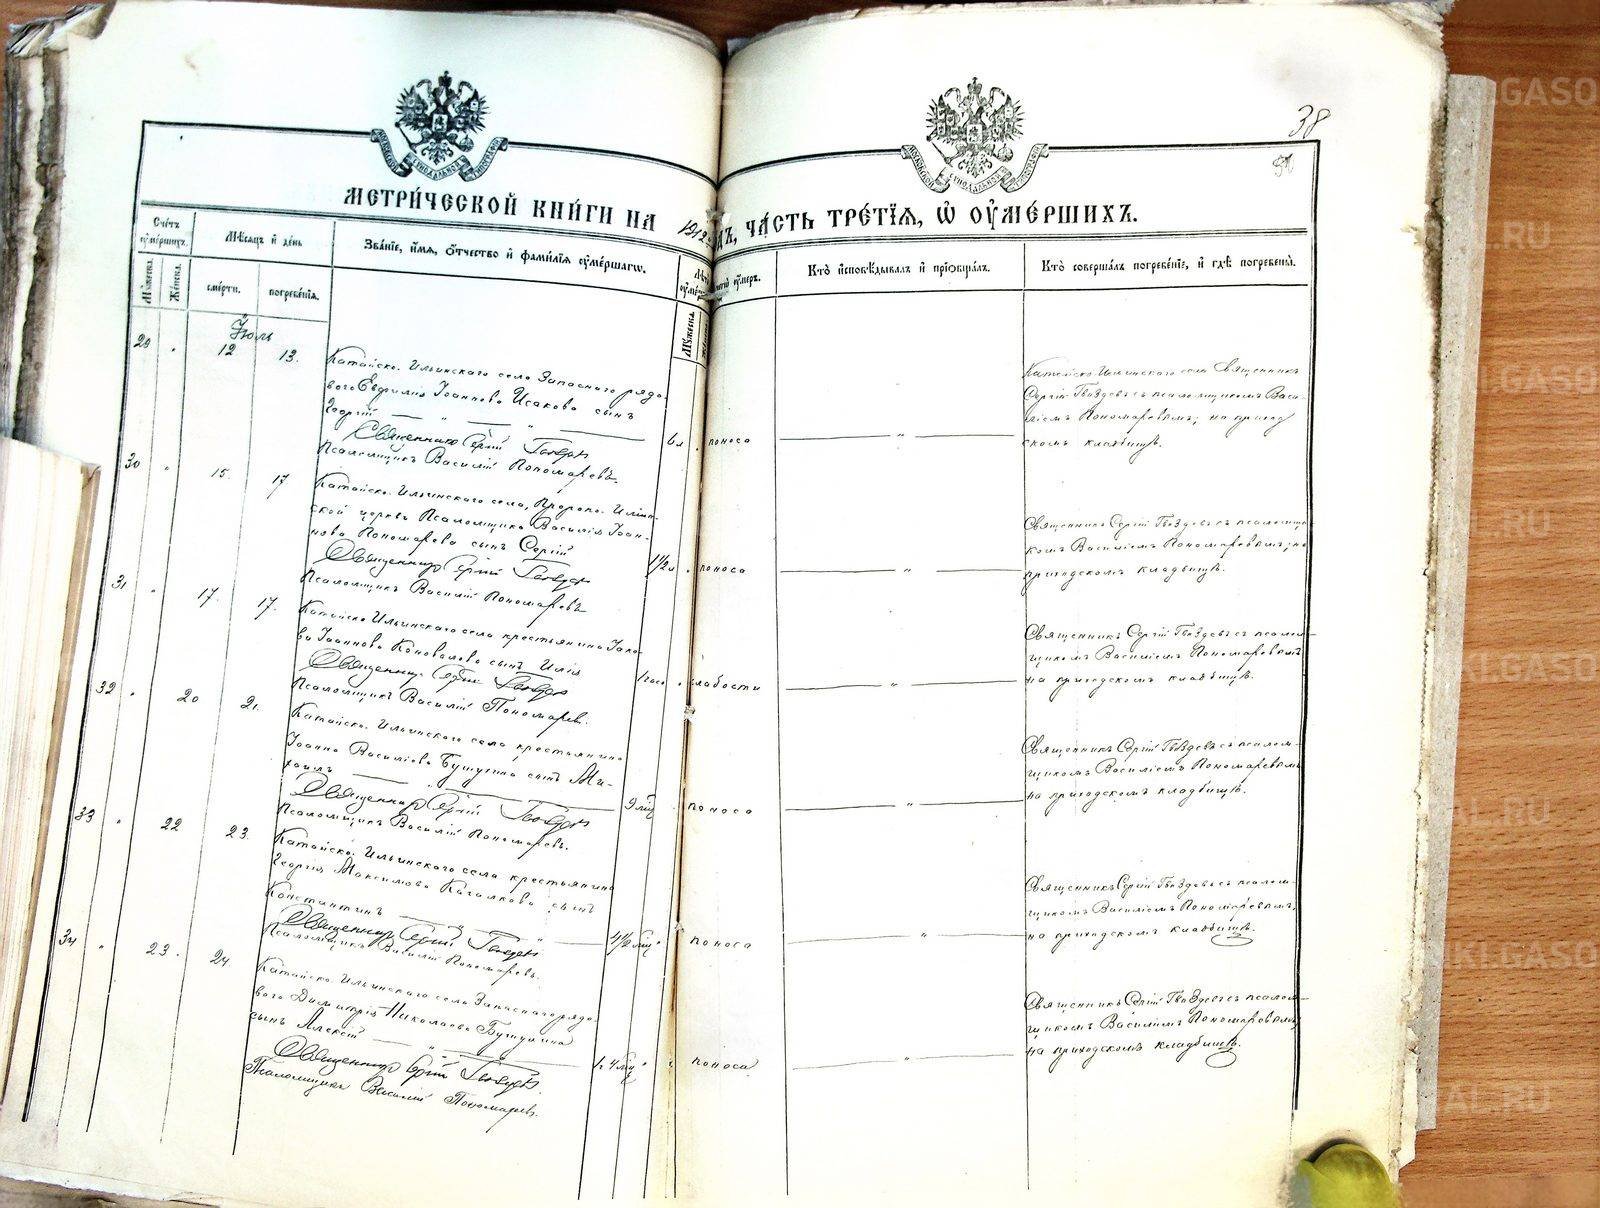 38
МЕТРИ́ЧЕСКОЙ КНИ́ГИ НА 1912 ДЪ, ЧА́СТЬ ТРЕ́ТІѦ, Ѿ ОУМЕ́РШИХЪ.
МОСКОВСКОЙ СѴНОДАЛЬНОЙ ТИПОГРАФІИ
МОСКОВСКОЙ СѴНОДАЛЬНОЙ ТИПОГРАФІИ
Счетъ оумершихъ.
Мѣсяцъ и день
Званіе, имя, отчество и фамилія оумершагѡ.
оумеръ.
Кто исповѣдывалъ и пріобщалъ.
Кто совершалъ погребеніе, и гдѣ погребены.
Мужеска.
Женска.
смерти.
погребенія.
Мужеска
Іюль
29 12 13.
Катайско-Ильинскаго села Запасного рядо-
вого Евфимія Іоаннова Исакова сынъ
Георгій
Священникъ Сергій Гвоздевъ
Псаломщикъ Василій Пономаревъ.
6 л поноса
Катайско-Ильинскаго села Священникъ
Сергій Гвоздевъ съ псаломщикомъ Васи-
ліемъ Пономаревымъ; на приход
скомъ кладбищѣ.
30 15. 17
Катайско-Ильинскаго села, Пророко-Ильин-
ской церкви Псаломщика Василія Іоан-
нова Пономарева сынъ Сергій
Священникъ Сергій Гвоздевъ
Псаломщикъ Василій Пономаревъ
1 1/2 л поноса
Священникъ Сергій Гвоздевъ съ псаломщи
комъ Василіемъ Пономаревымъ; на
приходскомъ кладбищѣ.
31 17. 17.
Катайско-Ильинскаго села крестьянина Іако-
ва Іоаннова Коновалова сынъ Илія
Священникъ Сергій Гвоздевъ
Псаломщикъ Василій Пономаревъ.
слабости
Священникъ Сергій Гвоздевъ съ псалом-
щикомъ Василіемъ Пономаревымъ
на приходскомъ кладбищѣ.
32 20 21.
Катайско-Ильинскаго села крестьянина
Іоанна Василіева Бутугина сынъ Ми-
хаилъ
Священникъ Сергій Гвоздевъ
Псаломщикъ Василій Пономаревъ.
9 мѣц поноса
Священникъ Сергій Гвоздевъ съ псалом-
щикомъ Василіемъ Пономаревымъ
на приходскомъ кладбищѣ.
33 22 23.
Катайско-Ильинскаго села крестьянина
Георгія Максимова сынъ
Константинъ
Священникъ Сергій Гвоздевъ
Псаломщикъ Василій Пономаревъ.
4 1/2 мѣц поноса
Священникъ Сергій Гвоздевъ съ псалом-
щикомъ Василіемъ Пономаревымъ,
на приходскомъ кладбищѣ.
34 23. 24.
Катайско-Ильинскаго села Запасного рядо-
вого Димитрія Николаева Бутугина
сынъ Алексій
Священникъ Сергій Гвоздевъ
Псаломщикъ Василій Пономаревъ.
4 мѣц поноса
Священникъ Сергій Гвоздевъ съ псалом-
щикомъ Василіемъ Пономаревымъ
на приходскомъ кладбищѣ.